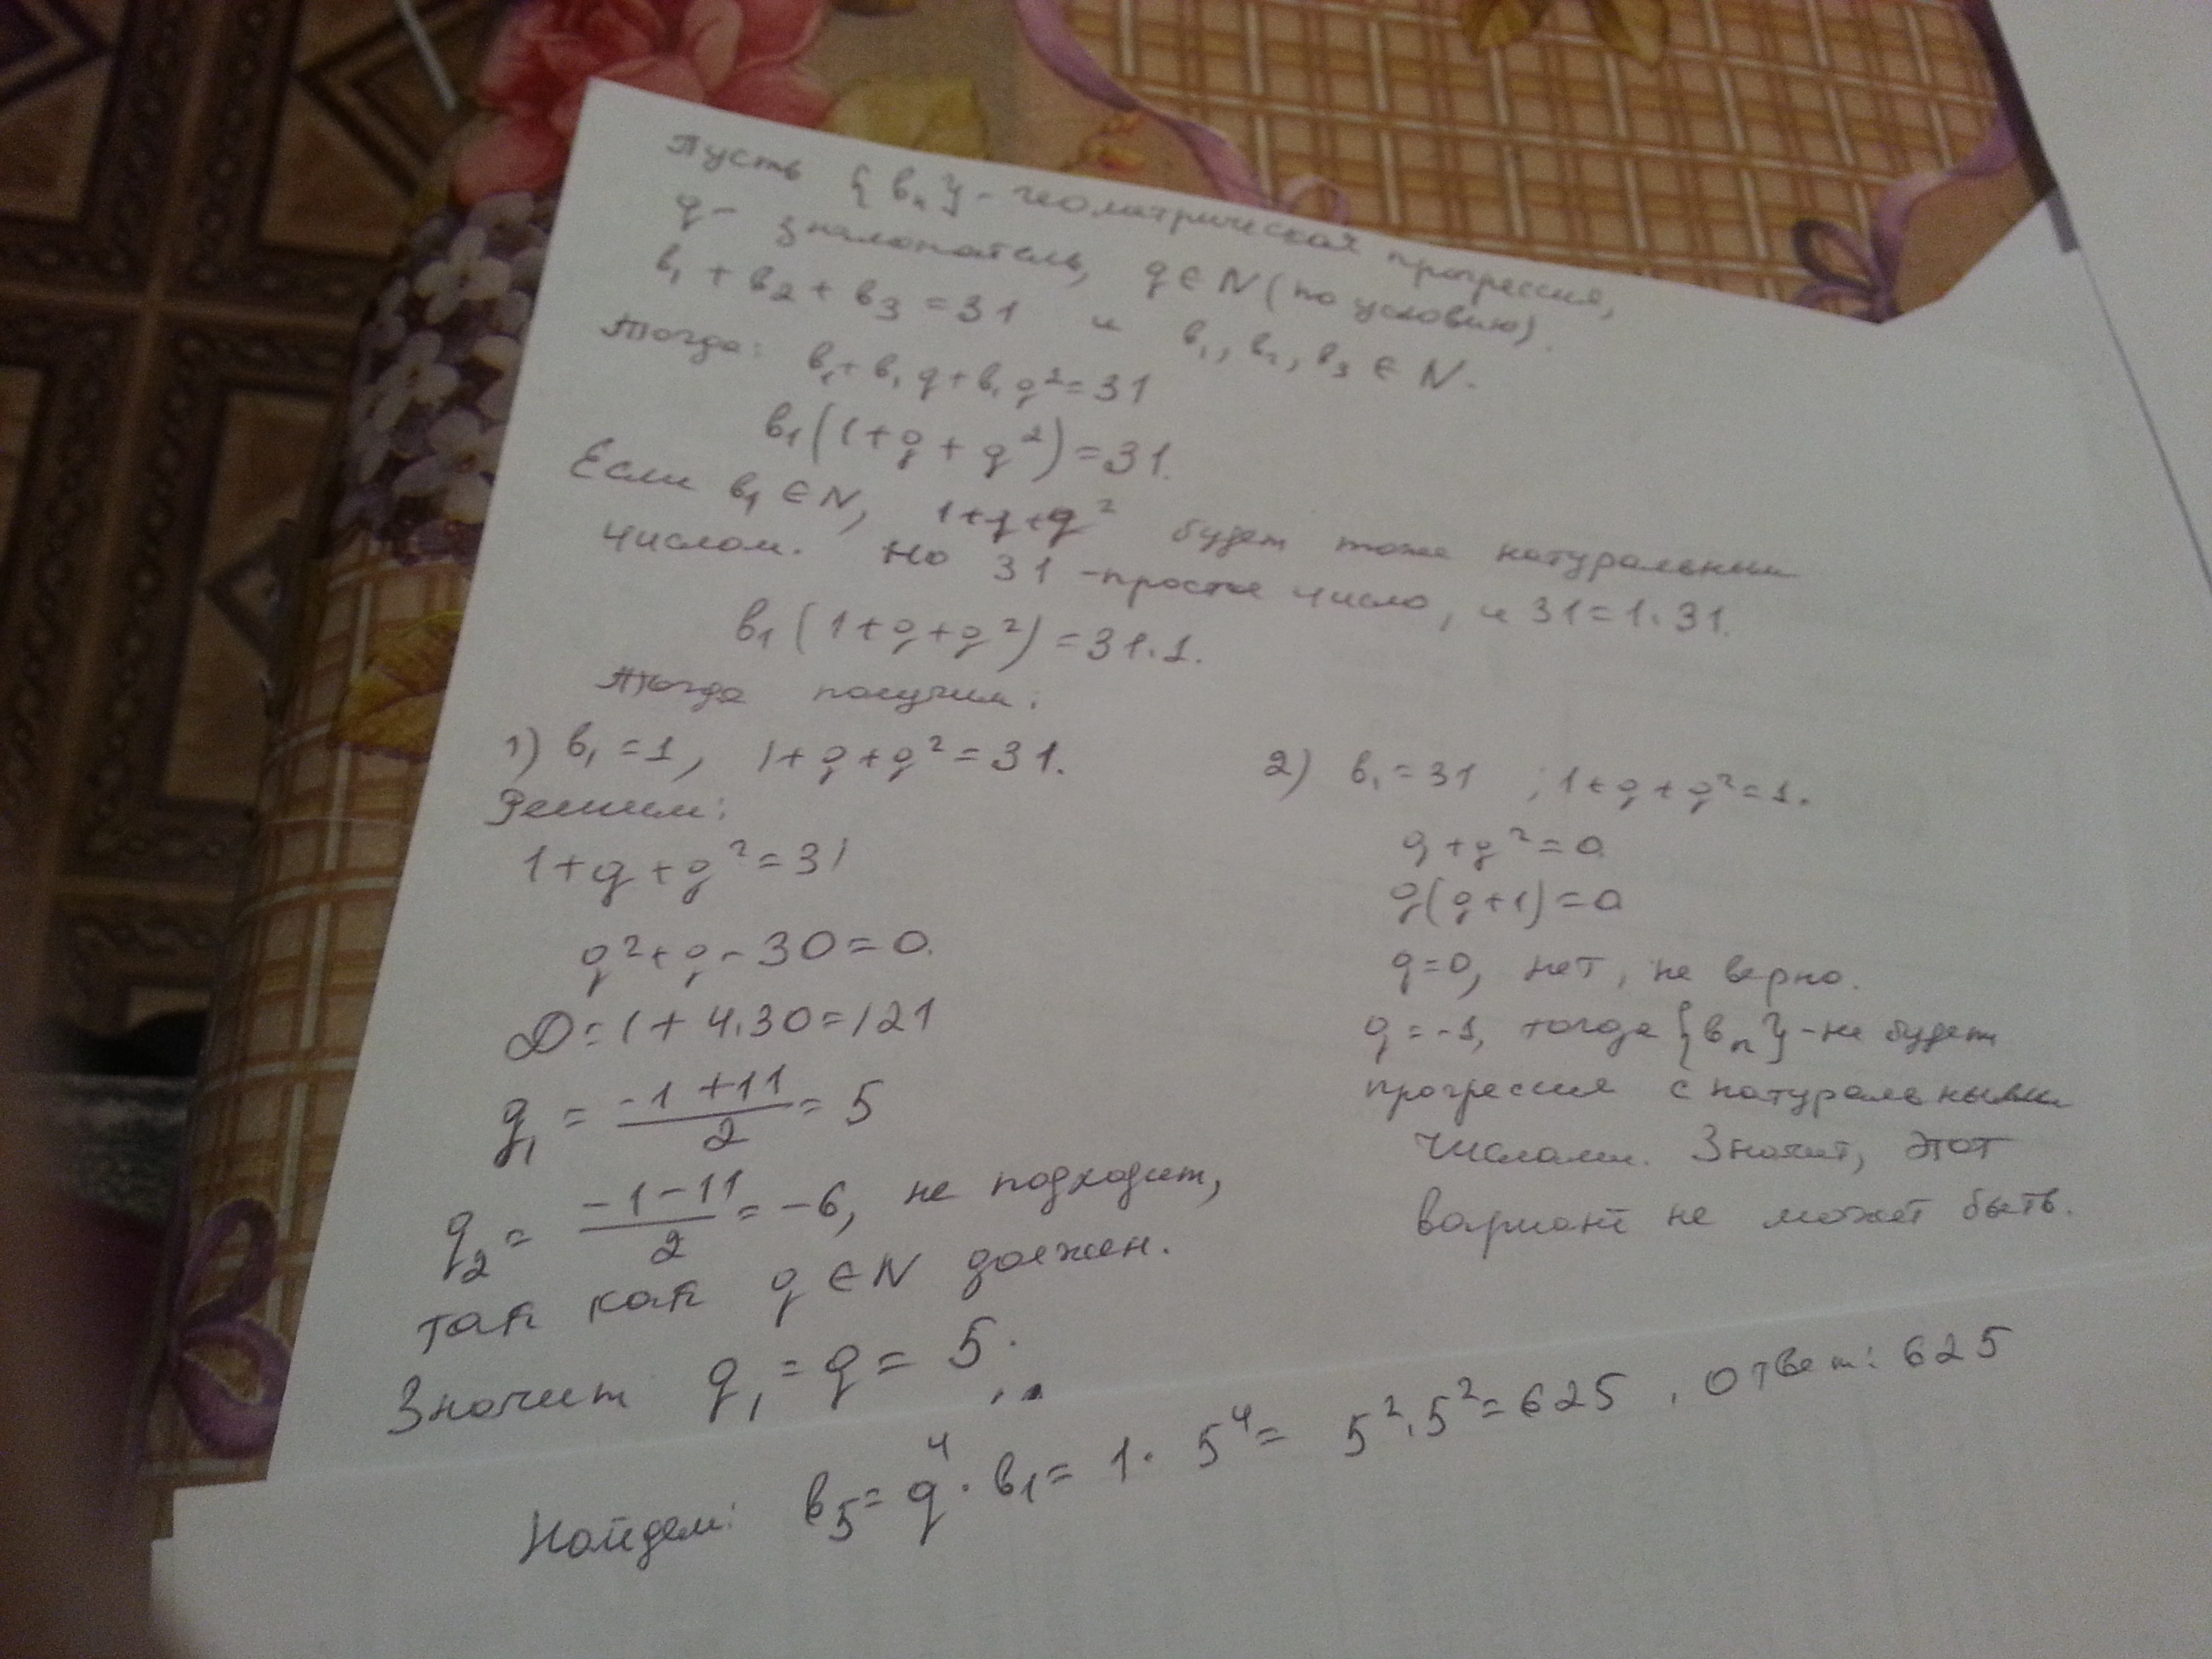 Пусть {bₙ} - геометрическая прогрессия,
q - знаменатель, q ∈ N (по условию).
b₁ + b₂ + b₃ = 31 и b₁, b₂, b₃ ∈ N.
Тогда: b₁ + b₁q + b₁q² = 31
b₁(1+q+q²) = 31.
Если b₁ ∈ N, 1+q+q² будет тоже натуральным
числом. Но 31 - простое число, и 31 = 1·31.
b₁(1+q+q²) = 31·1.
Тогда получим:
1) b₁ = 1, 1+q+q² = 31.
Решим:
1+q+q² = 31
q²+q-30 = 0.
D = 1+4·30 = 121
q₁ = (-1+11)/2 = 5
q₂ = (-1-11)/2 = -6, не подходит,
так как q ∈ N должен.
Значит q₁ = q = 5.
2) b₁ = 31; 1+q+q² = 1.
q+q² = 0.
q(q+1) = 0
q=0, нет, не верно.
q = -1, тогда {bₙ} - не будет
прогрессия с натуральными
числами. Значит, этот
вариант не может быть.
Найдем: b₅ = q⁴·b₁ = 1·5⁴ = 5²·5² = 625, Ответ: 625